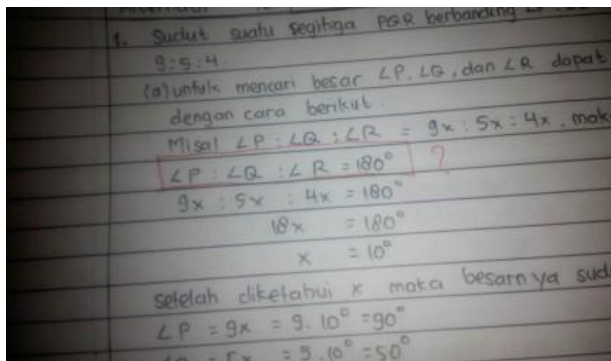 1. Sudut suatu segitiga PQR berbanding
9:5:4
(a) untuk mencari besar ∠P. ∠Q, dan ∠R dapat
dengan cara berikut.
Misal ∠P : ∠Q : ∠R = 9x : 5x : 4x, mak
∠P : ∠Q : ∠R = 180° ?
9x : 5x : 4x = 180°
18x = 180°
x = 10°
setelah diketahui x maka besarnya sud
∠P = 9x = 9. 10° = 90°
= 5x = 5.10° = 50°